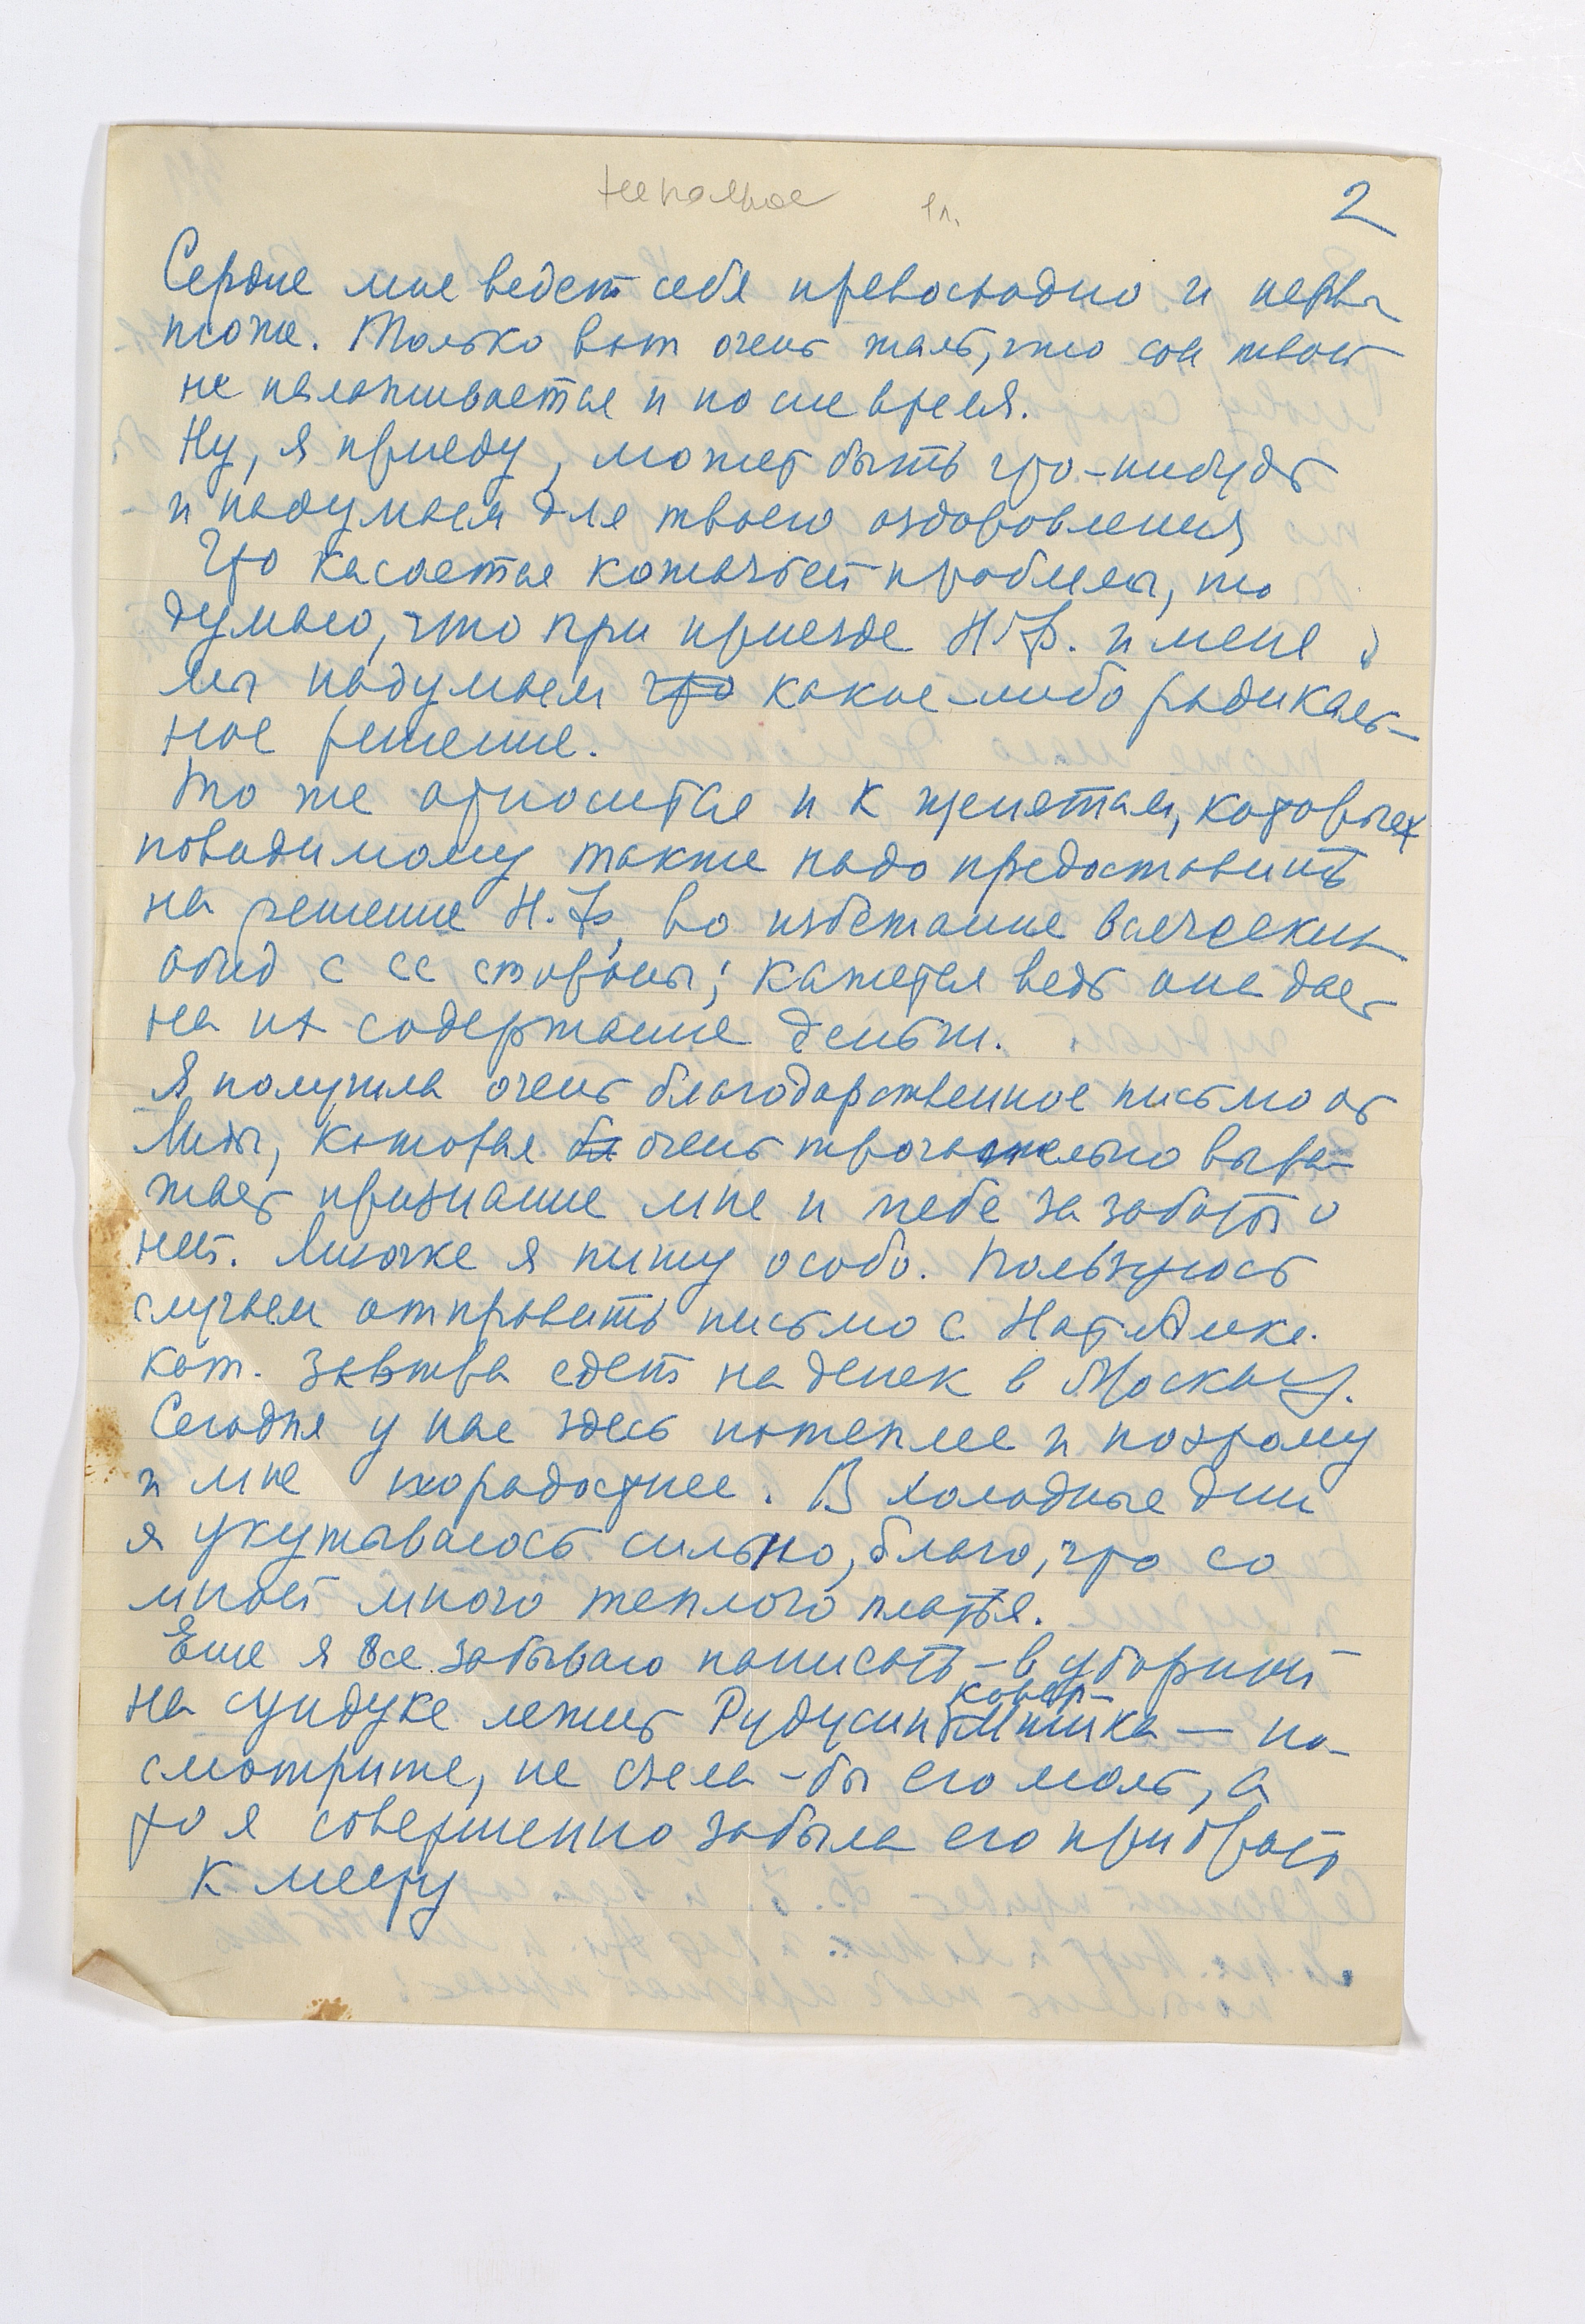 неполное 1 л.
2
Сердце мое ведет себя превосходно и нервы
тоже. Только вот очень жаль, что сон твой
не налаживается и по сие время.
Ну, я приеду, может быть что-нибудь
и надумаем для твоего оздоровления
Что касается кошачьей проблемы, то
думаю, что при приезде Н.Ф. и меня
мы надумаем что какое-либо радикаль-
ное решение.
То же относится и к щенятам, которых
повидимому также надо предоставить
на решение Н.Ф. во избежание всяческих
обид с ее стороны; кажется ведь она дает
на их содержание деньги.
Я получила очень благодарственное письмо от
Лиды, которая очень трогательно выра-
жает признание мне и тебе за заботы о
ней. Линочке я пишу особо. Пользуюсь
случаем отправить письмо с Нат. Алекс.
кот. завтра едет на денек в Москву.
Сегодня у нас здесь потеплее и поэтому
и мне порадостнее. В холодные дни
я укутываюсь сильно, благо, что со
мной много теплого платья.
Еще я все забываю написать – в уборной
на сундуке лежит Рудусин ковер-
Мишка — по-
смотрите, не съела-бы его моль, а
то я совершенно забыла его прибрать
к месту